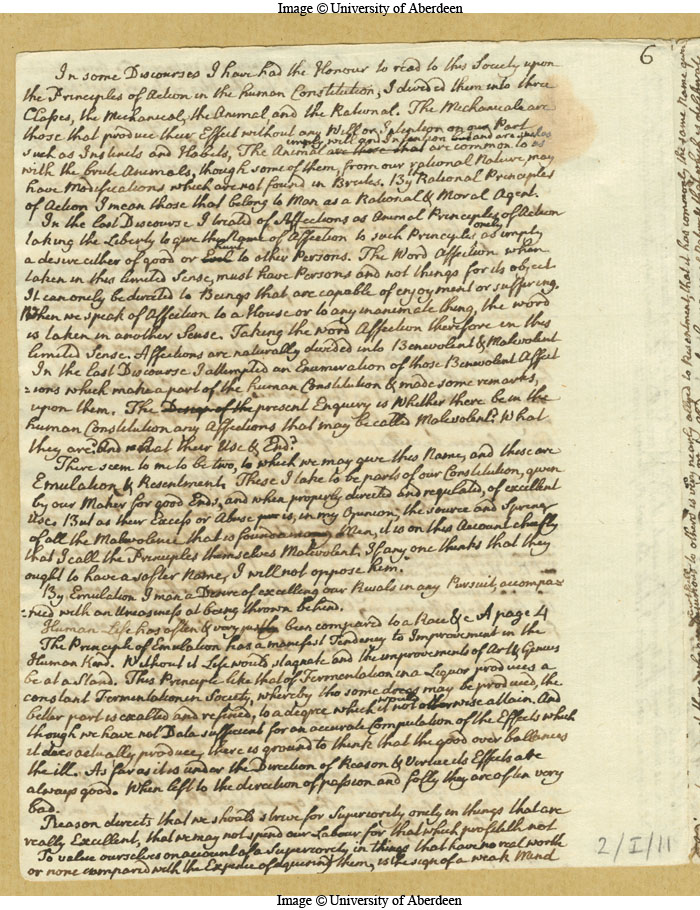 Image © University of Aberdeen
6
In some Discourses I have had the Honour to read to this Society upon
the Principles of Action in the human Constitution, I divided them into three
Classes, the Mechanical, the Animal and the Rational. The Mechanical are
those that produce their Effect without any Will or Intention on our Part
imply will and Intention and are such as
such as Instincts and Habits, The Animal are those that are common to us
with the brute Animals, though some of them, from our rational Nature may
have Modifications which are not found in Brutes. By Rational Principles
of Action I mean those that belong to Man as a Rational & Moral Agent.
In the last Discourse I treated of Affections as Animal Principles of Action
only
taking the Liberty to give the Name of Affection to such Principles as imply
hurt
a desire either of good or Evil to other Persons. The Word Affection when
taken in this limited Sense, must have Persons and not things for its object
It can only be directed to Beings that are capable of enjoyment or suffering.
When we speak of Affection to a House or to any inanimate thing, the word
is taken in another Sense. Taking the word Affection therefore in this
limited Sense. Affections are naturally divided into Benevolent & Malevolent
In the last Discourse I attempted an Enumeration of those Benevolent Affect
:ions which make a part of the human Constitution & made some remarks,
upon them. The Design of the present Enquiry is Whether there be in the
human Constitution any Affections that may be called Malevolent? What
they are? And what their Use & End?
There seem to me to be two, to which we may give this Name, and these are
Emulation & Resentment. These I take to be parts of our Constitution, given
by our Maker for good Ends, and when properly directed and regulated, of excellent
Use. But as their Excess or Abuse is, in my Opinion, the source and Spring
of all the Malevolence that is found among Men, it is on this Account chiefly
that I call the Principles themselves Malevolent. If any one thinks that they
ought to have a softer Name, I will not oppose him.
By Emulation I mean a Desire of excelling our Rivals in any Pursuit, accompa=
:nied with an Uneasiness at being thrown behind.
Human Life has often & very justly been compared to a Race &c A page 4
The Principle of Emulation has a manifest Tendency to Improvement in the
Human kind. Without it Life would stagnate and the improvements of Art & Genius
be at a Stand. This Principle like that of Fermentation in a Liquor produces a
constant Fermentation in Society, whereby tho some dregs may be produced, the
would
better part is exalted and refined, to a degree which it not otherwise attain. And
though we have not Data sufficient for an accurate Computation of the Effects which
it does actually produce, there is ground to think that the good over ballances
the ill. As far as it is under the Direction of Reason & Vertue its Effects are
always good. When left to the direction of passion and folly they are often very
bad.
Reason directs that we should strive for Superiority only in things that are
really Excellent, that we may not spend our Labour for that which profiteth not
To value ourselves on account of a Superiority in things that have no real worth
or none compared with the Expence of aquiring them, is the sign of a weak Mind
2/I/11
Image © University of Aberdeen